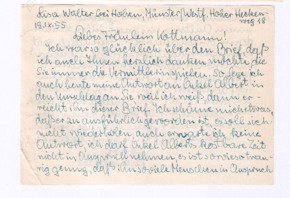 Lisa Walter bei Hoben, Münster/Westf. Hoher Hecken-
weg 18
19.IX.55
Liebes Fräulein Kottmann!
Ich war so glücklich über den Brief, daß
ich auch Ihnen herzlich danken möchte, die
Sie immer die Vermittlerin spielen. So lege ich
auch heute meine Antwort an Onkel Albert in
den Umschlag an Sie weil ich weiß, dann er-
reicht ihn dieser Brief. Ich schäme mich etwas,
daß er so ausführlich geworden ist, es soll sich
nicht wiederholen auch erwarte ich keine
Antwort, ich darf Onkel Alberts kostbare Zeit
nicht in Anspruch nehmen, es ist sonst so trau-
rig genug, daß ihn so viele Menschen in Anspruch